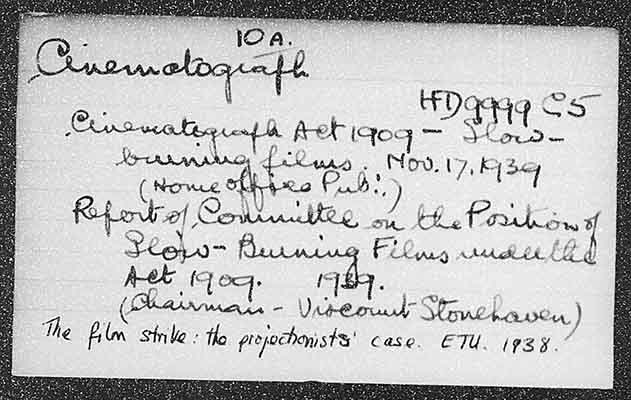 10A.
Cinematograph
HD9999 C5
Cinematograph Act 1909 - Slow-
burning films. Nov. 17. 1939
(Home Office Pub:.)
Report of Committee on the Position of
Slow-Burning Films under the
Act 1909. 1939.
(Chairman - Viscount Stonehaven)
The film strike: the projectionists' case. ETU. 1938.